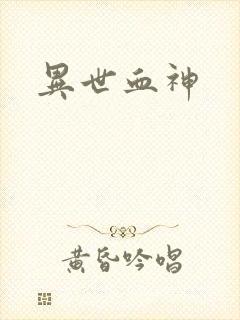 異世血神
黄昏吟唱